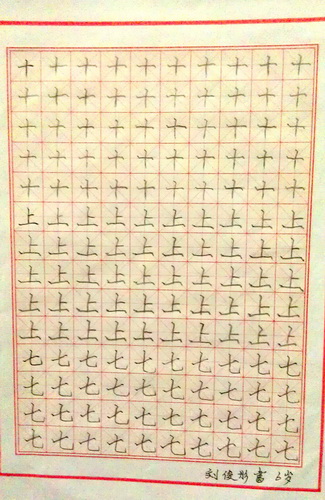 十十十十十十十十十十
十十十十十十十十十十
十十十十十十十十十十
十十十十十十十十十十
十十十十十十十十十十
上上上上上上上上上上
上上上上上上上上上上
上上上上上上上上上上
上上上上上上上上上上
上上上上上上上上上上
七七七七七七七七七七
七七七七七七七七七七
七七七七七七七七七七
七七七七七七七七七七
刘俊彤書 岁